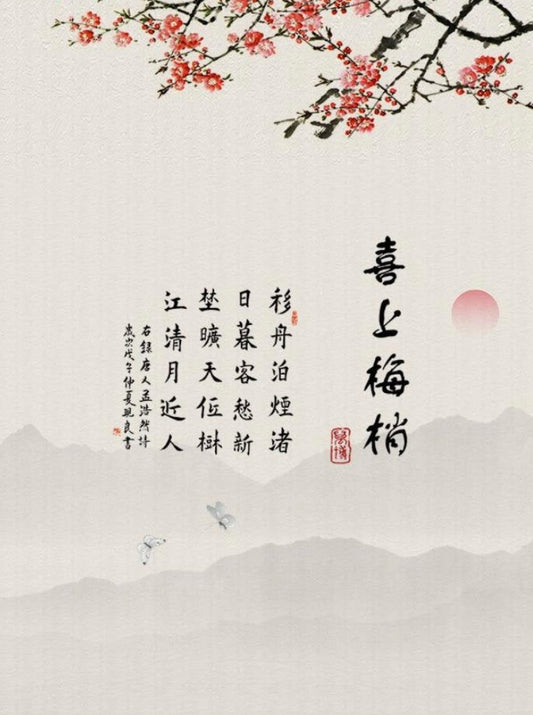 喜上梅梢
移舟泊煙渚
日暮客愁新
埜曠天低樹
江清月近人
右錄唐人孟浩然詩
歲次戊午仲夏良書